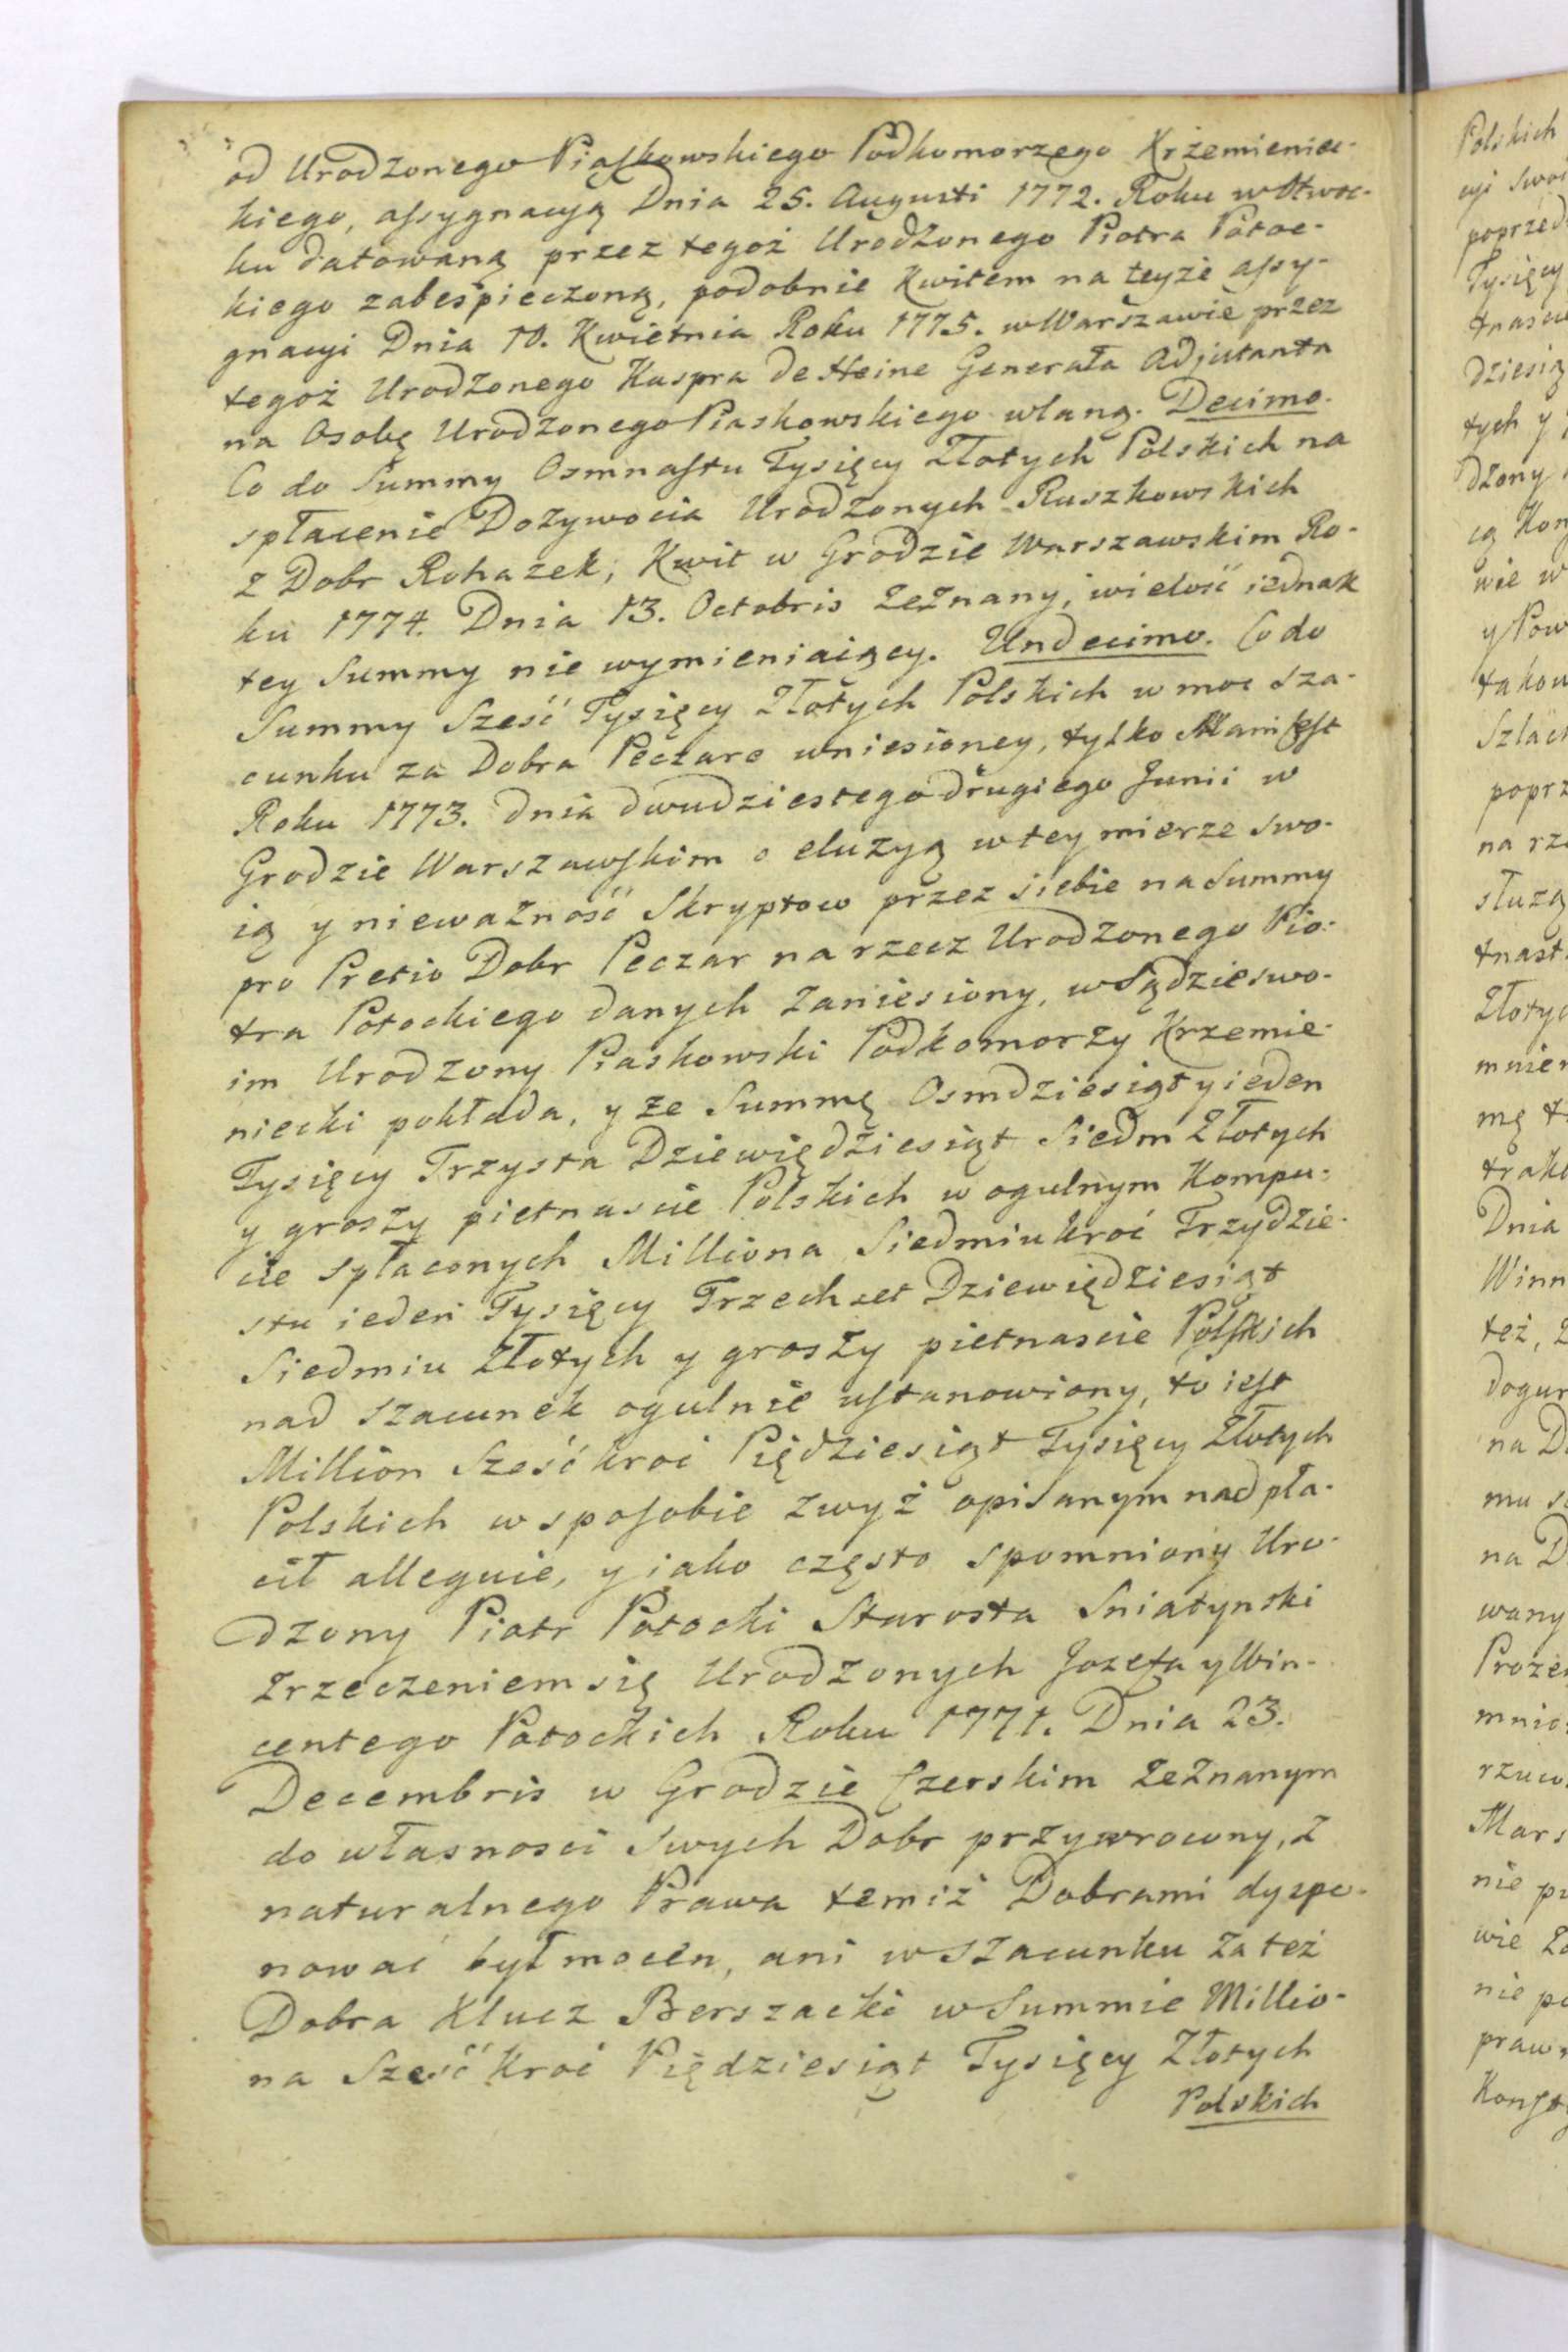 od Urodzonego Piaskowskiego Podkomorzego Krzemieniec-
kiego, assygnacyą Dnia 25. Augusti 1772. Roku w Otwoc-
ku datowaną przez tegoż Urodzonego Piotra Potoc-
kiego zabespieczoną, podobnie Kwitem na teyże assy-
gnacyi Dnia 10. Kwietnia Roku 1775. w Warszawie przez
tegoż Urodzonego Kaspra de Heine Generała Adjutanta
na Osobę Urodzonego Piaskowskiego wlaną. Decimo.
Co do Summy Osmnastu Tysięcy Złotych Polskich na
spłacenie Dożywocia Urodzonych Ruszkowskich
z Dobr Rohazek, Kwit w Grodzie Warszawskim Ro-
ku 1774. Dnia 13. Octobris zeznany, wielość iednak
tey Summy nie wymieniaiący. Undecimo. Co do
Summy Sześć Tysięcy Złotych Polskich w moc sza-
cunku za Dobra Peczare wniesioney, tylko Manifest
Roku 1773. dnia dwudziestego drugiego Junii w
Grodzie Warszawskim o eluzyą w tey mierze swo-
ią y nieważność Skryptow przez siebie na Summy
pro Pretio Dobr Peczar na rzecz Urodzonego Pio-
tra Potockiego danych zaniesiony, w Sądzie swo-
im Urodzony Piaskowski Podkomorzy Krzemie-
niecki pokłada, y że Summę Osmdziesiąt y ieden
Tysięcy Trzysta Dziewiędziesiąt Siedm Złotych
y groszy pietnascie Polskich w ogulnym Kompu-
cie spłaconych Milliona Siedmiukroć Trzydzie-
stu ieden Tysięcy Trzechset Dziewiędziesiąt
Siedmiu Złotych y groszy pietnascie Polskich
nad szacunek ogulnie ustanowiony, to iest
Million Sześćkroć Piędziesiąt Tysięcy Złotych
Polskich w sposobie zwyż opisanym nadpła-
cił alleguie, y iako często spomniony Uro-
dzony Piotr Potocki Starosta Sniatynski
zrzeczeniem się Urodzonych Jozefa y Win-
centego Potockich Roku 1771. Dnia 23.
Decembris w Grodzie Czerskim zeznanym
do własnosci swych Dobr przywrocony, z
naturalnego Prawa temiż Dobrami dyspo-
nować był mocen, ani w szacunku za też
Dobra Klucz Berszacki w Summie Millio-
na Sześćkroć Piędziesiąt Tysięcy Złotych
Polskich